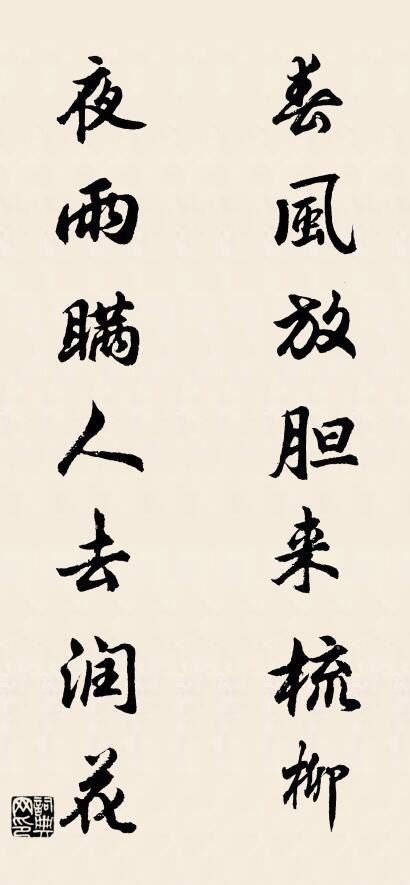 春風放胆来梳柳
夜雨瞒人去润花